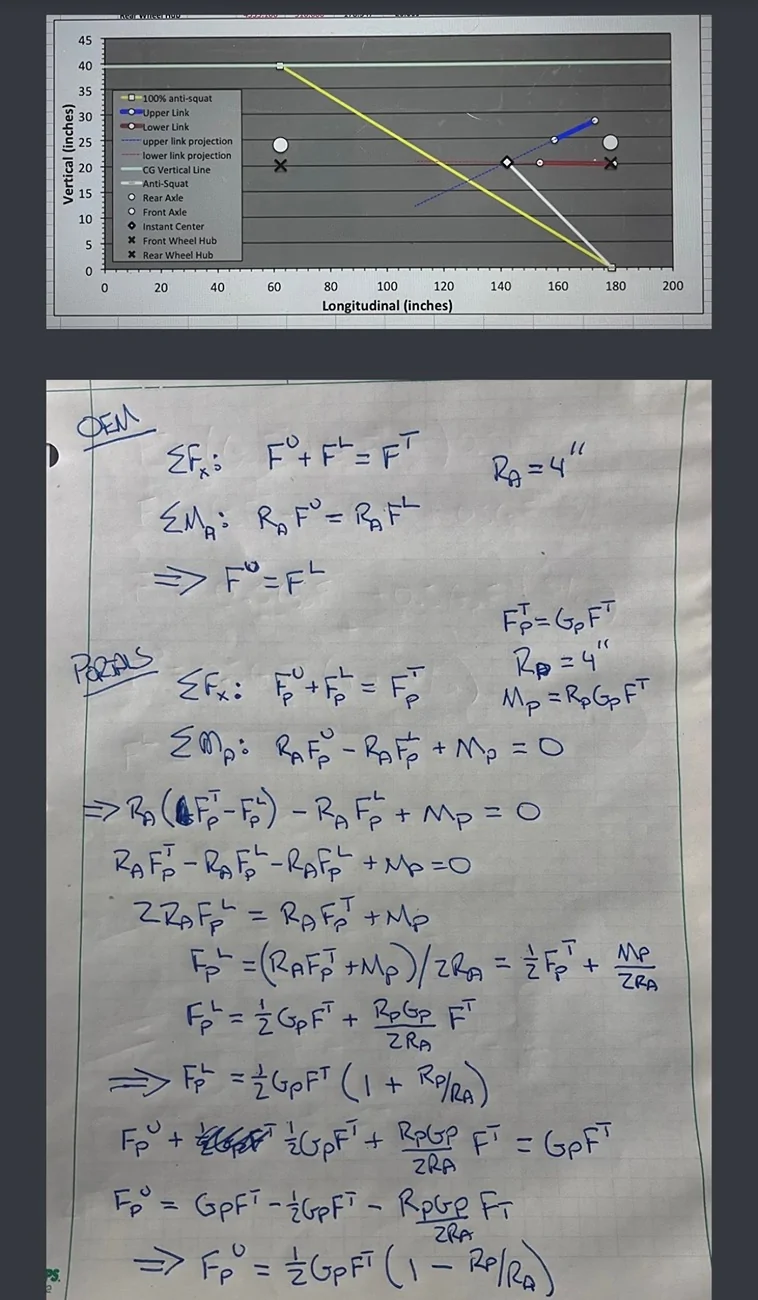 Rear Wheel Hub
45
40
35
30
25
20
15
10
5
0
Vertical (inches)
100% anti-squat
Upper Link
Lower Link
upper link projection
lower link projection
CG Vertical Line
Anti-Squat
Rear Axle
Front Axle
Instant Center
Front Wheel Hub
Rear Wheel Hub
0 20 40 60 80 100 120 140 160 180 200
Longitudinal (inches)
OEM
ΣFx: F^U + F^L = F^T
R_A = 4"
ΣM_A: R_A F^U = R_A F^L
⇒ F^U = F^L
F_P^T = G_P F^T
PORTALS
R_P = 4"
ΣFx: F_P^U + F_P^L = F_P^T
M_P = R_P G_P F^T
ΣM_A: R_A F_P^U - R_A F_P^L + M_P = 0
⇒ R_A (F_P^T - F_P^L) - R_A F_P^L + M_P = 0
R_A F_P^T - R_A F_P^L - R_A F_P^L + M_P = 0
2R_A F_P^L = R_A F_P^T + M_P
F_P^L = (R_A F_P^T + M_P)/2R_A = 1/2 F_P^T + M_P/2R_A
F_P^L = 1/2 G_P F^T + R_P G_P/2R_A F^T
⇒ F_P^L = 1/2 G_P F^T (1 + R_P/R_A)
F_P^U + 1/2 G_P F^T + R_P G_P/2R_A F^T = G_P F^T
F_P^U = G_P F^T - 1/2 G_P F^T - R_P G_P/2R_A F_T
⇒ F_P^U = 1/2 G_P F^T (1 - R_P/R_A)
PS.